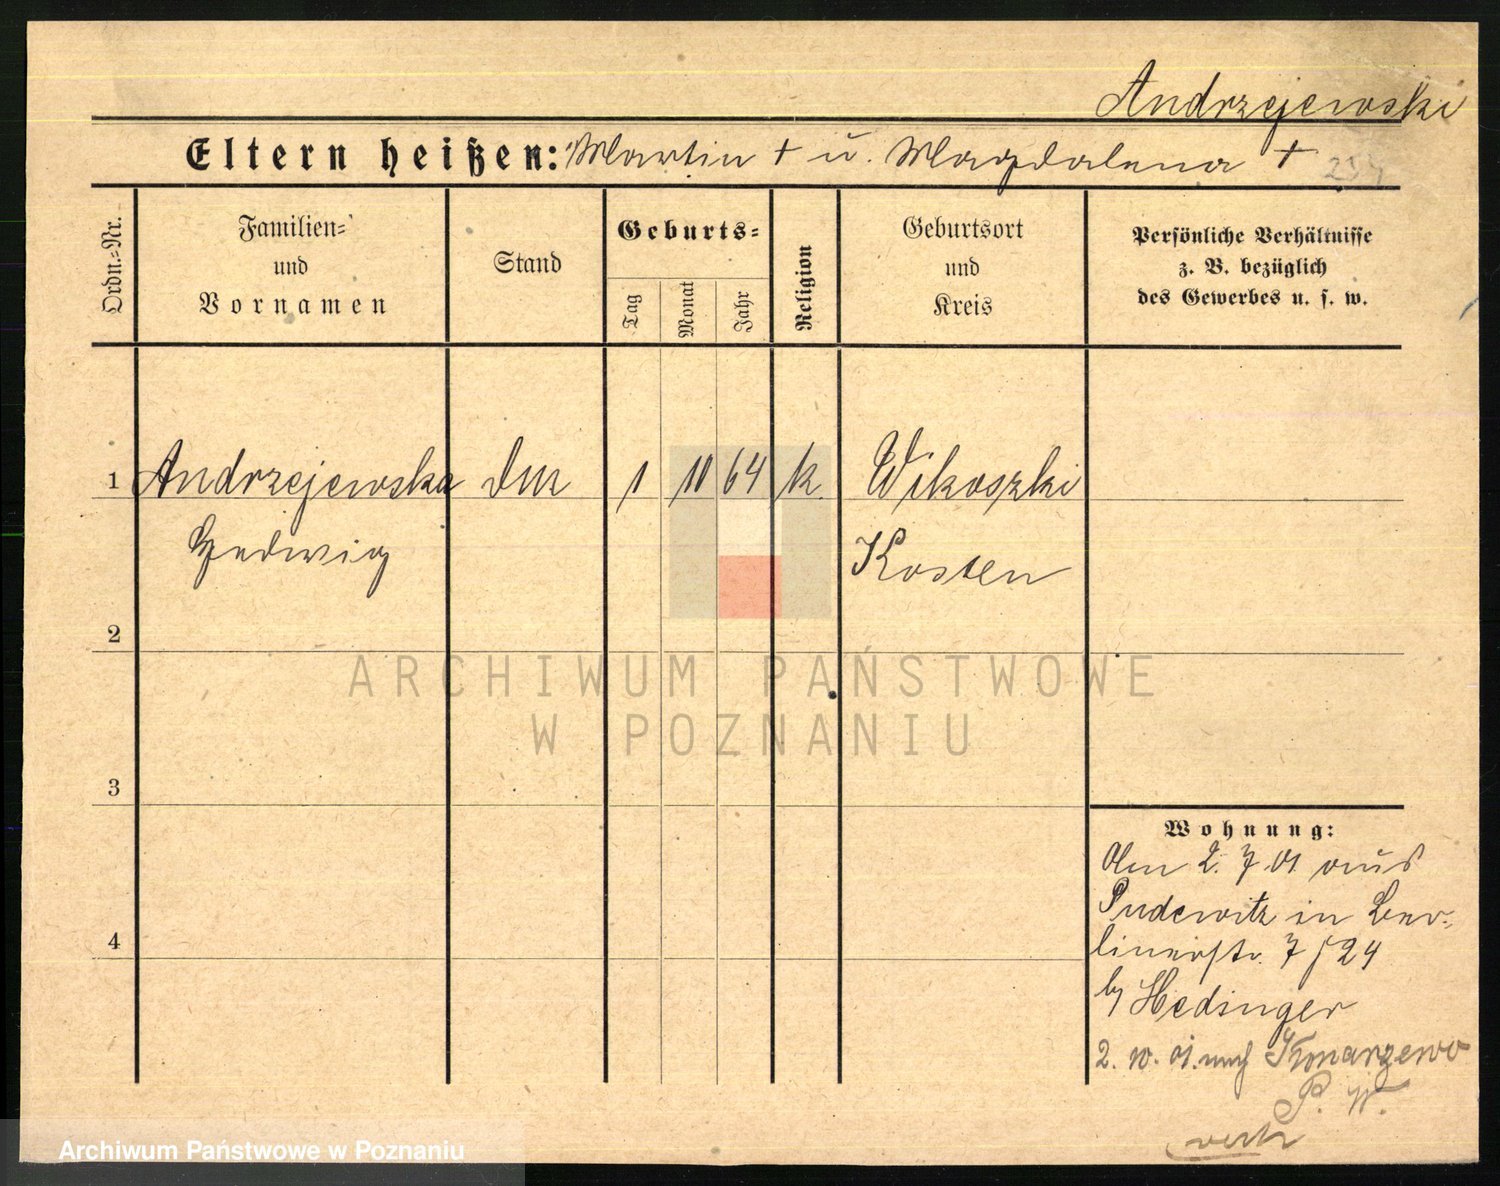 Andrzejewski
Eltern heißen: Martin † u. Magdalena †
Ordn.-Nr.
Familien-
und
Vornamen
Stand
Geburts-
Tag
Monat
Jahr
Religion
Geburtsort
und
Kreis
Persönliche Verhältnisse
z. B. bezüglich
des Gewerbes u. s. w.
1 Andrzejewska 1 10 64 k. Wikoszki
Hedwig Kosten
2
3
4
Wohnung:
Den 2. 7 01 aus
Pudewitz in Ber-
linerstr. 7 f 24
by Hedinger
2. 10. 01. nach Konarzewo
P. W.
verh
ARCHIWUM PAŃSTWOWE
W POZNANIU
Archiwum Państwowe w Poznaniu